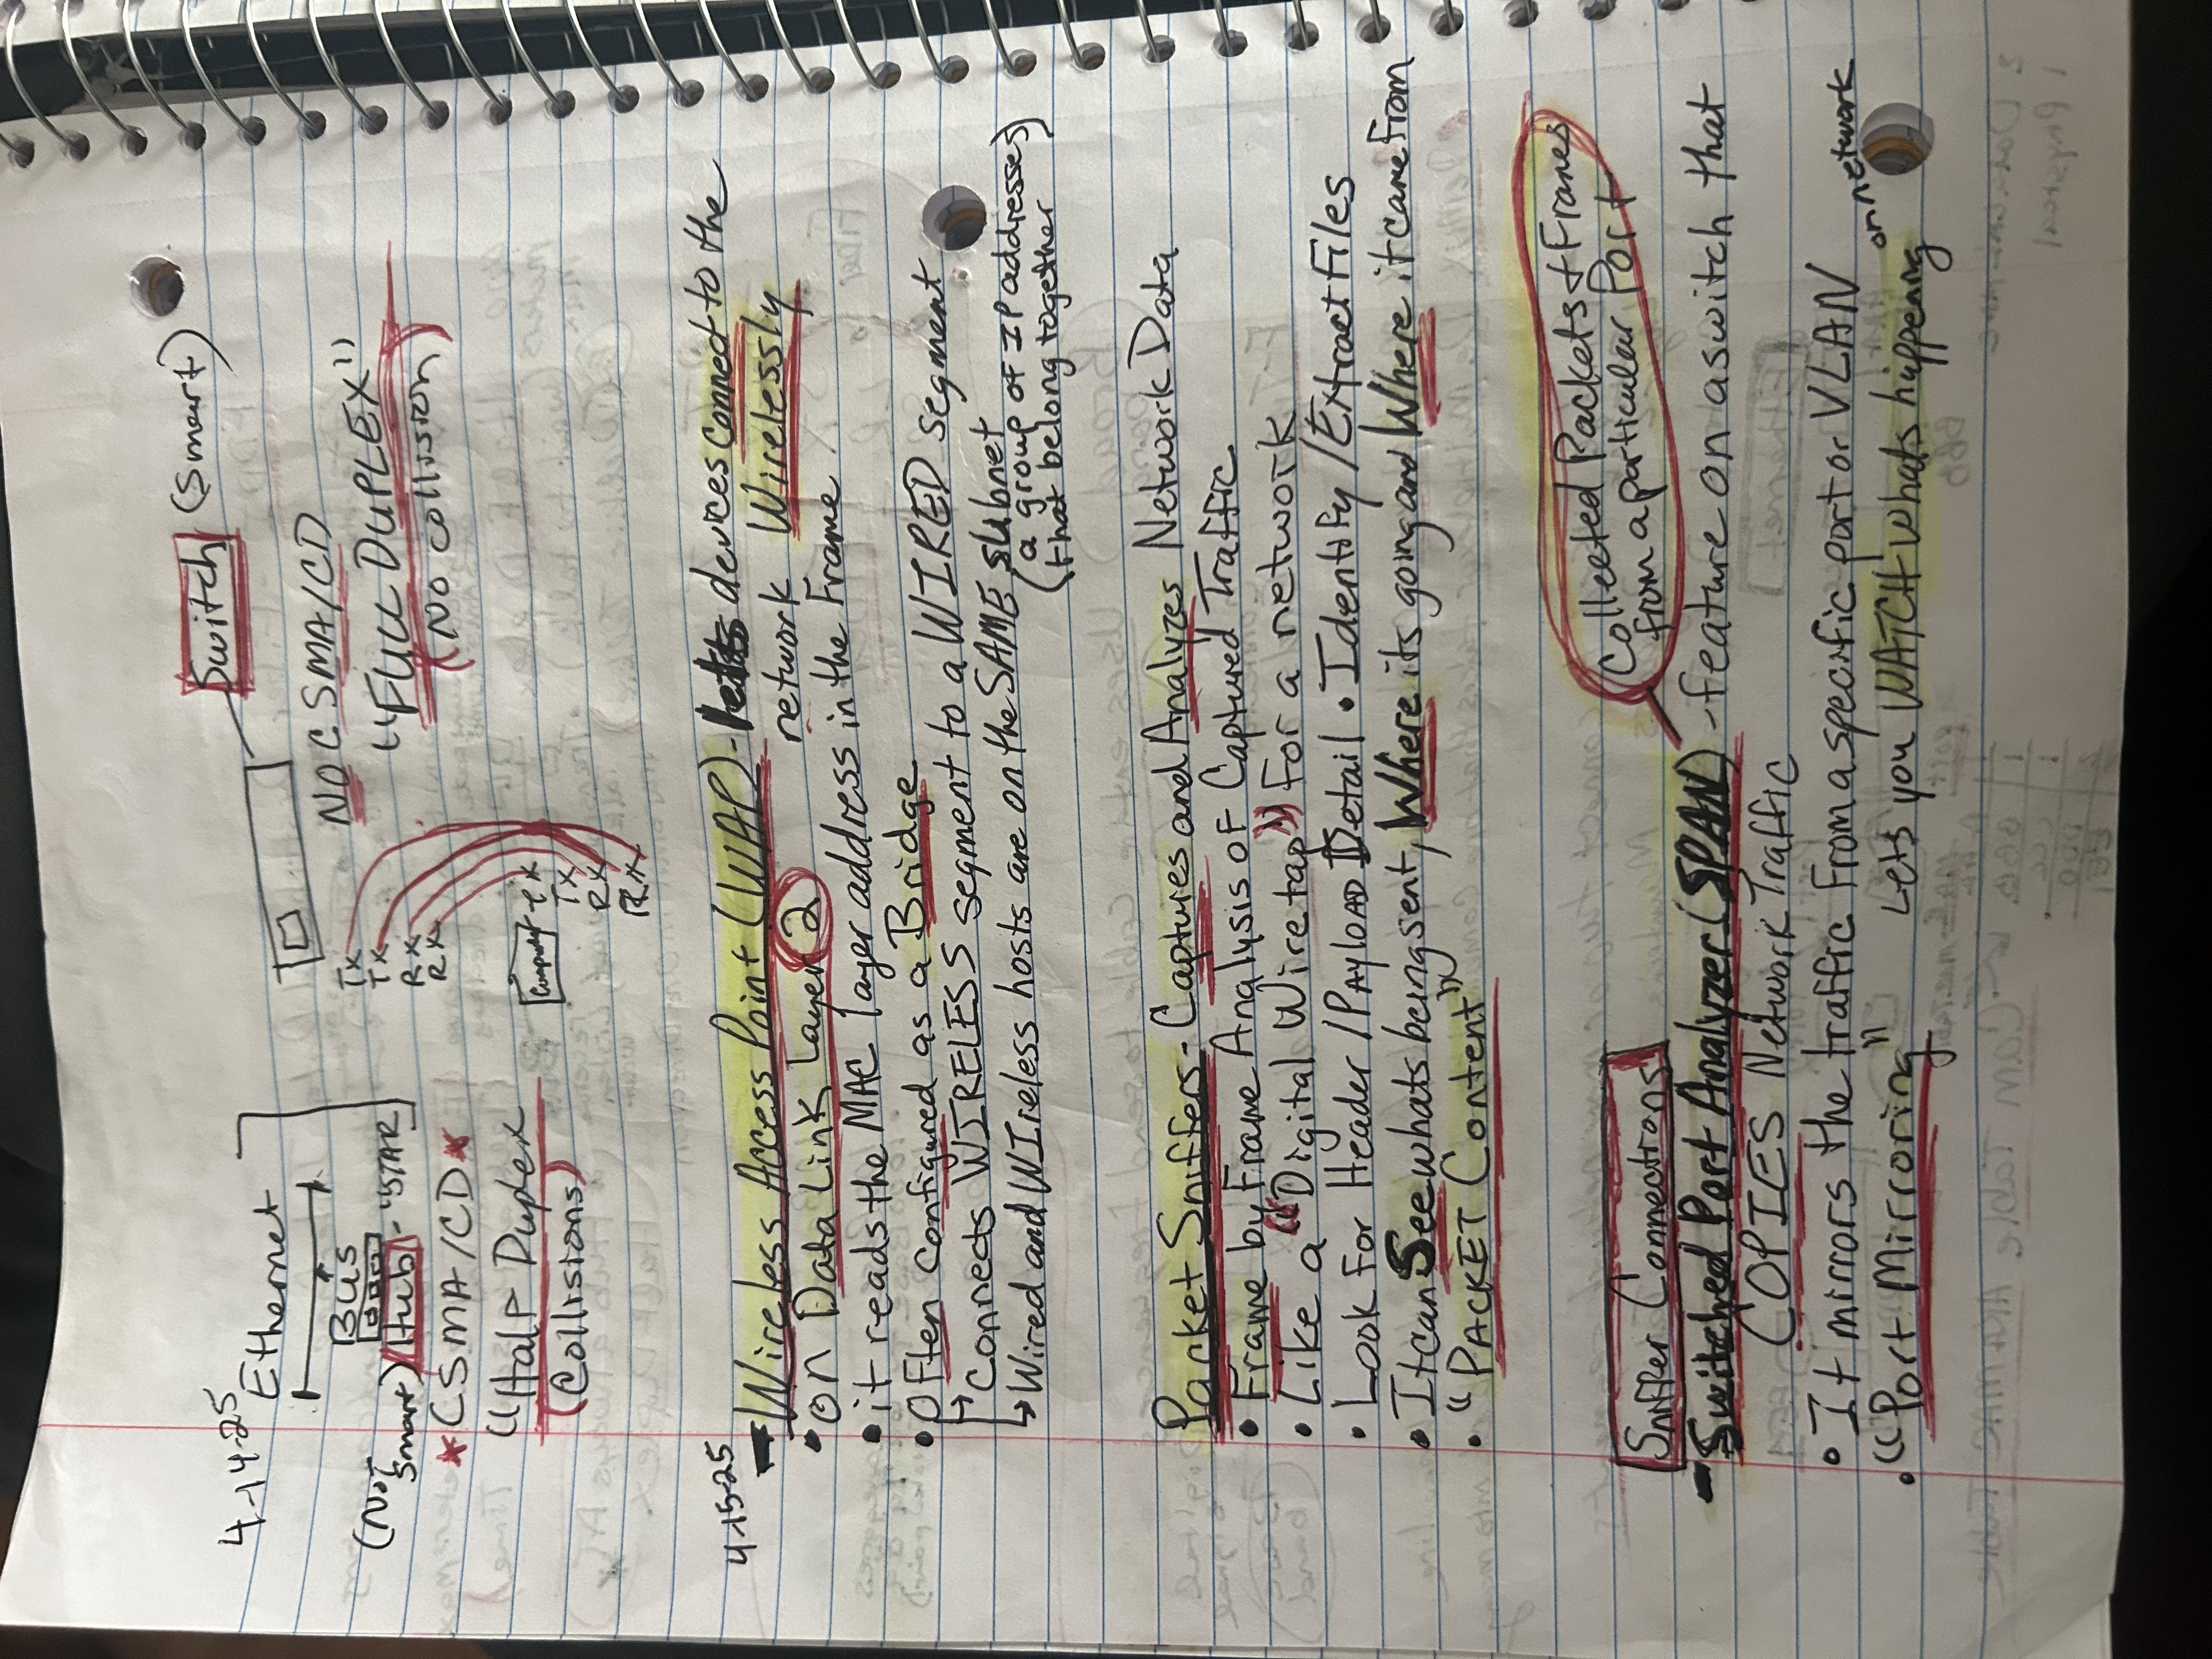 4-14-25
Ethernet
Bus
(Not Smart) Hub - "STAR
* CSMA/CD *
"Half Duplex
(Collisions)
Switch (Smart)
NO CSMA/CD
"FULL DUPLEX"
(No collision)
Tx
Tx
Rx
Rx
Computer
Tx
Tx
Rx
Rx
4-15-25
- Wireless Access Point (WAP) - lets devices connect to the
network Wirelessly
• on Data Link Layer 2
• it reads the MAC layer address in the Frame
• Often configured as a Bridge
↳ Connects WIRELESS segment to a WIRED segment
↳ Wired and WIreless hosts are on the SAME subnet
(a group of IP addresses
that belong together)
Packet Sniffers - Captures and Analyzes Network Data
• Frame by Frame Analysis of Captured Traffic
• Like a "Digital Wiretap" For a network
• Look For Header / PAYLOAD Detail • Identify / Extract Files
• It can See whats being sent, Where its going and Where it came From
• "PACKET Content"
Collected Packets + Frames
from a particular Port
Sniffer Connections
- Switched Port Analyzer (SPAN) - feature on a switch that
COPIES Network Traffic
• It mirrors the traffic From a specific port or VLAN
• "Port Mirroring" Lets you WATCH whats happening on network